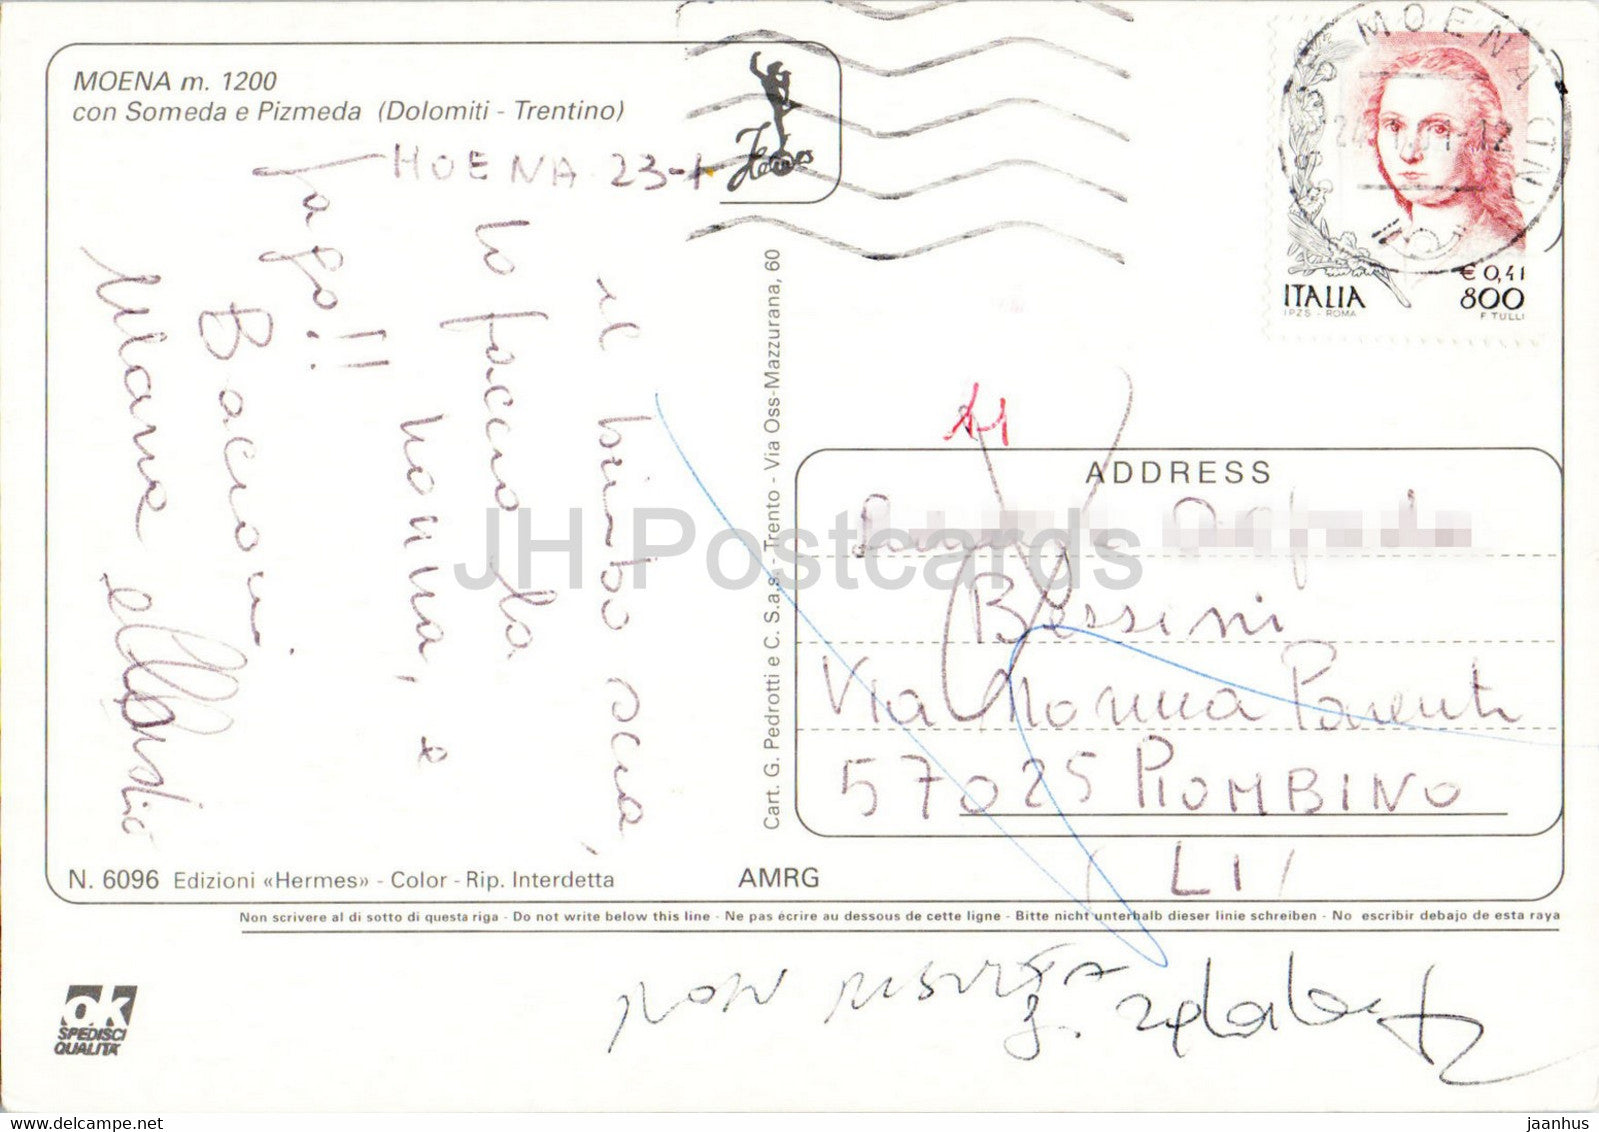 MOENA m. 1200
con Someda e Pizmeda (Dolomiti - Trentino)
MOENA 23-1
il bimbo scia,
io faccio la
nonna, e
vago!!
Bacioni
Mamma e
Hermes
Cart. G. Pedrotti e C. S.a.s. - Trento - Via Oss-Mazzurana, 60
MOENA (TN)
ITALIA
€ 0,41
800
IPZS - ROMA
F. TULLI
ADDRESS
Bessini
Via Norma Parenti
57025 PIOMBINO
(LI)
N. 6096 Edizioni «Hermes» - Color - Rip. Interdetta
AMRG
Non scrivere al di sotto di questa riga - Do not write below this line - Ne pas écrire au dessous de cette ligne - Bitte nicht unterhalb dieser linie schreiben - No escribir debajo de esta raya
NON
OK
SPEDISCI
QUALITÀ
JH Postcards
www.delcampe.net
jaanhus